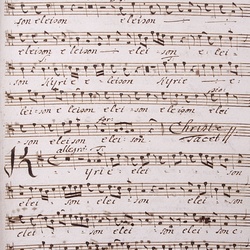 son eleison eleison
eleison eleison elei - son e - lei -
son Kyrie e - leison Kyrie e -
lei - son e leison eleison elei
son eleison elei - son Christe
tacet
allegro
Kyrie elei - son
elei - son elei - son
elei - son elei - son elei -
elei - son eleison e -